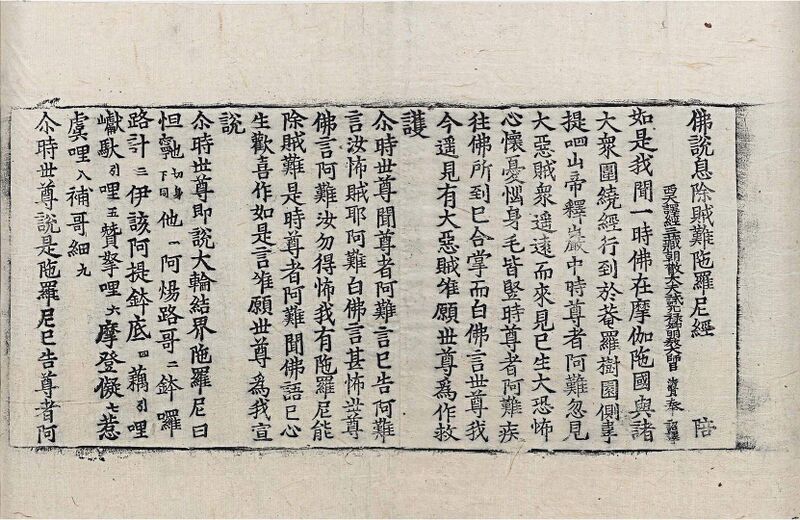 佛說息除賊難陁羅尼經 陪
西天譯經三藏朝散大夫試光祿卿明教大師臣 法賢奉 詔譯
如是我聞一時佛在摩伽陁國與諸
大衆圍繞經行到於菴羅樹園側事
提呬山帝釋巖中時尊者阿難忽見
大惡賊衆遥遠而來見已生大恐怖
心懷憂惱身毛皆竪時尊者阿難疾
往佛所到已合掌而白佛言世尊我
今遥見有大惡賊唯願世尊爲作救
護
尒時世尊聞尊者阿難言已告阿難
言汝怖賊耶阿難白佛言甚怖世尊
佛言阿難汝勿得怖我有陁羅尼能
除賊難是時尊者阿難聞佛語已心
生歡喜作如是言唯願世尊爲我宣
說
尒時世尊即說大輪結界陁羅尼曰
怛切身下同他一阿煬路哥二鉢囉
路計三伊該阿提鉢底四藕引哩
巘馱引哩五贊拏哩六摩登儗七惹
虞哩八補哥細九
尒時世尊說是陁羅尼已告尊者阿